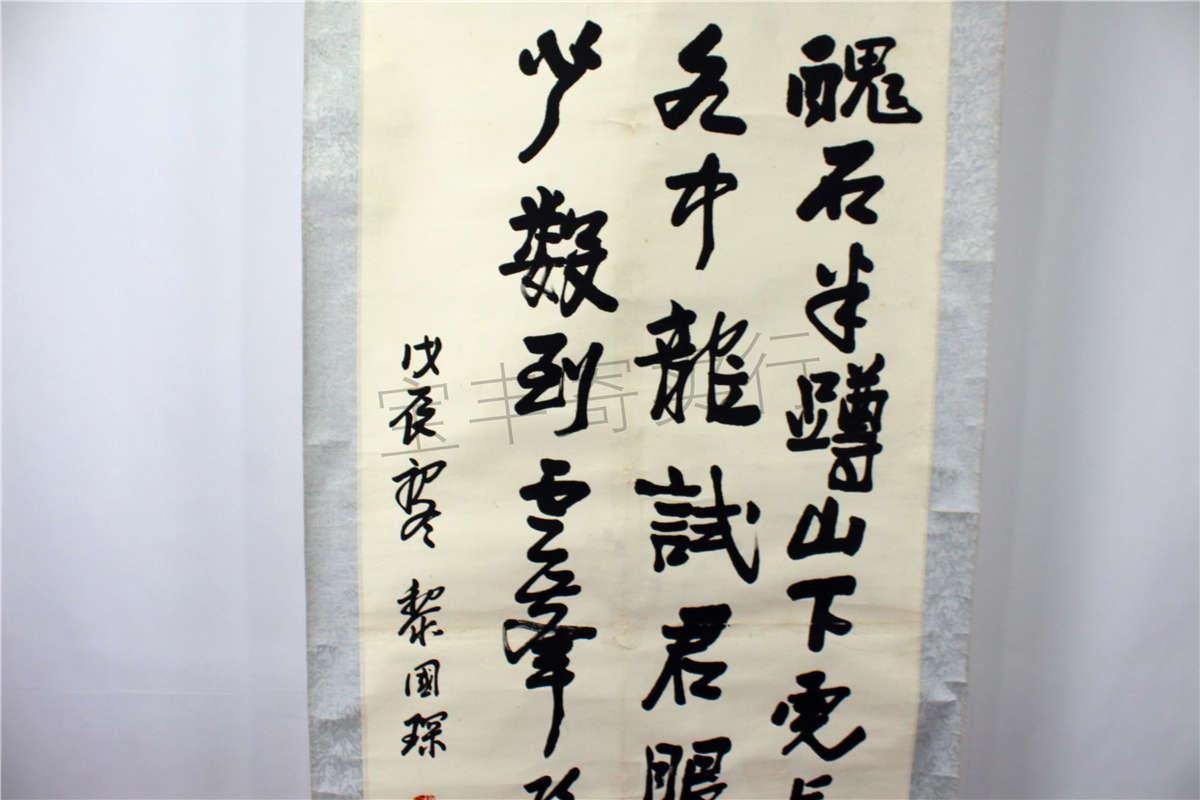 醜石半蹲山下虎
水中龍試君眼
少數到雲峰
戊辰初冬 黎國琛
宝丰寄卖行